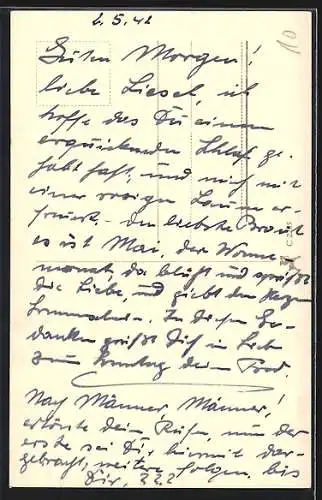 2. 5. 42
Guten Morgen!
liebe Liesel, ich
hoffe das Du einen
erquickenden Schlaf ge-
habt hast, und mich mit
einer rosigen Laune er-
freust. - den liebste Braut
es ist Mai, der Wonne-
monat, da blüht und sprießt
die Liebe, und giebt den Herzen
Sonnenschein. In diesen Ge-
danken grüßt Dich in Liebe
zum Sonntag dein
Nach Männer, Männer!
ertönte dein Rufen, nun der
erste sei Dir hiermit dar-
gebracht, weitere folgen. bis
Dir, ???
10